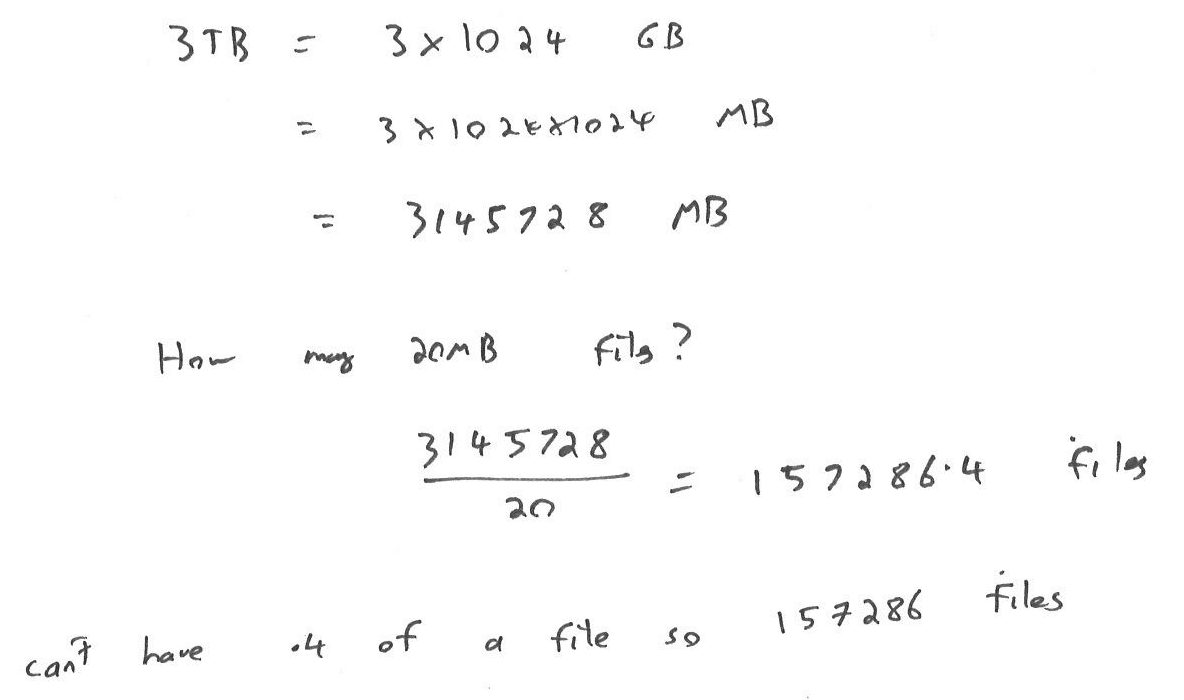 3TB = 3 × 1024 GB
= 3 × 1024×1024 MB
= 3145728 MB
How many 20MB files?
3145728
20
= 157286.4 files
can't have .4 of a file so 157286 files